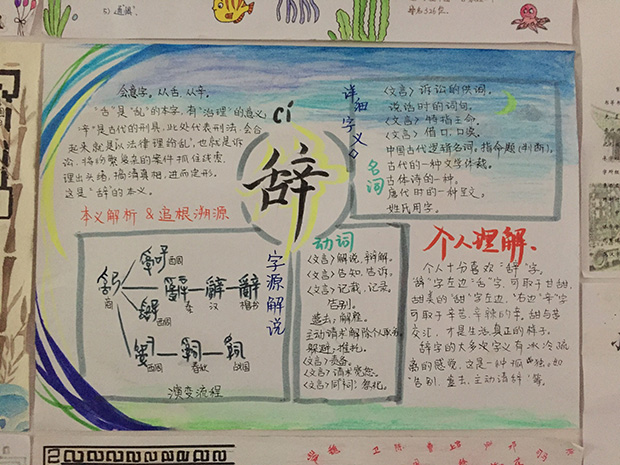 5)造福。
会意字,从舌,从辛。
"舌"是"乱"的本字,有"治理"的意义,
"辛"是古代的刑具,此处代表刑法,会合
起来就是以法律理纷乱,也就是诉
讼,将纷繁
的案件抓住线索,
理出头绪,搞清真相,进而定刑。
这是"辞"的本义。
本义解析&追根溯源
cí
辞
详细字义。
名词
〈文言〉诉讼的供词。
说话时的词句。
〈文言〉特指王命。
〈文言〉借口,口实。
中国古代逻辑名词,指命题(判断)。
古代的一种文学体裁。
古体诗的一种。
唐代时的一种
姓氏用字。
字源解说
商
西周
西周
西周
秦
汉
楷书
春秋
战国
演变流程
动词
〈文言〉解说,辩解。
〈文言〉告知,告诉。
〈文言〉记载,记录。
告别。
遣去,解雇。
主动请求解除个
躲避,推托。
〈文言〉责备。
〈文言〉请求宽恕。
〈文言〉同"祠",祭礼。
个人理解.
个人十分喜欢"辞"字。
"辞"字左边"舌"字,可取于甘甜,
甜美的"甜"字左边,"右边"辛"字
可取于辛苦、辛辣的辛,甜与苦
交汇,才是生活真正的样子。
辞字的大多次字义有冰冷疏
离的感觉,这是一种孤独。如
"告别,遣去,主动请辞"等。